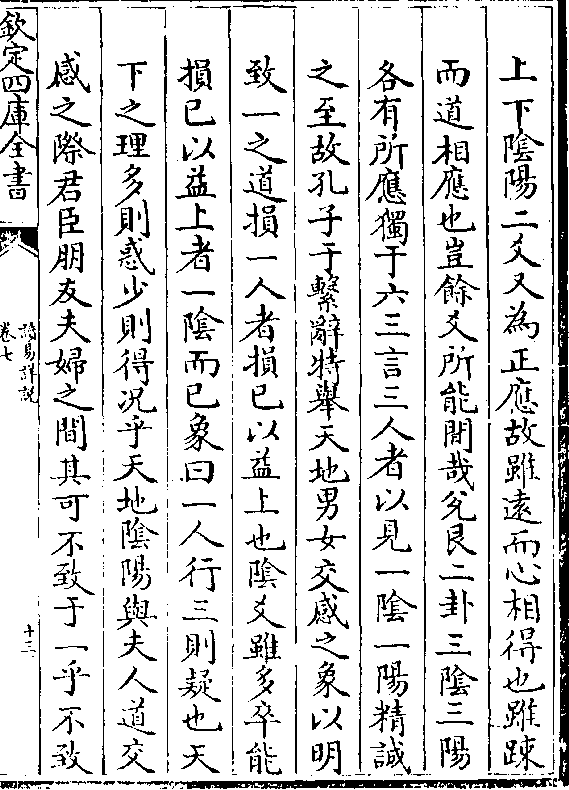 上下陰陽二爻又為正應故雖逺而心相得也雖踈
而道相應也豈餘爻所能間哉兊艮二卦三陰三陽
各有所應獨于六三言三人者以見一陰一陽精誠
之至故孔子于繫辭特舉天地男女交感之象以明
致一之道損一人者損已以益上也陰爻雖多卒能
損已以益上者一陰而已象曰一人行三則疑也天
下之理多則惑少則得况乎天地陰陽與夫人道交
感之際君臣朋友夫婦之間其可不致于一乎不致
欽定四庫全書
讀易詳說
卷七
十三